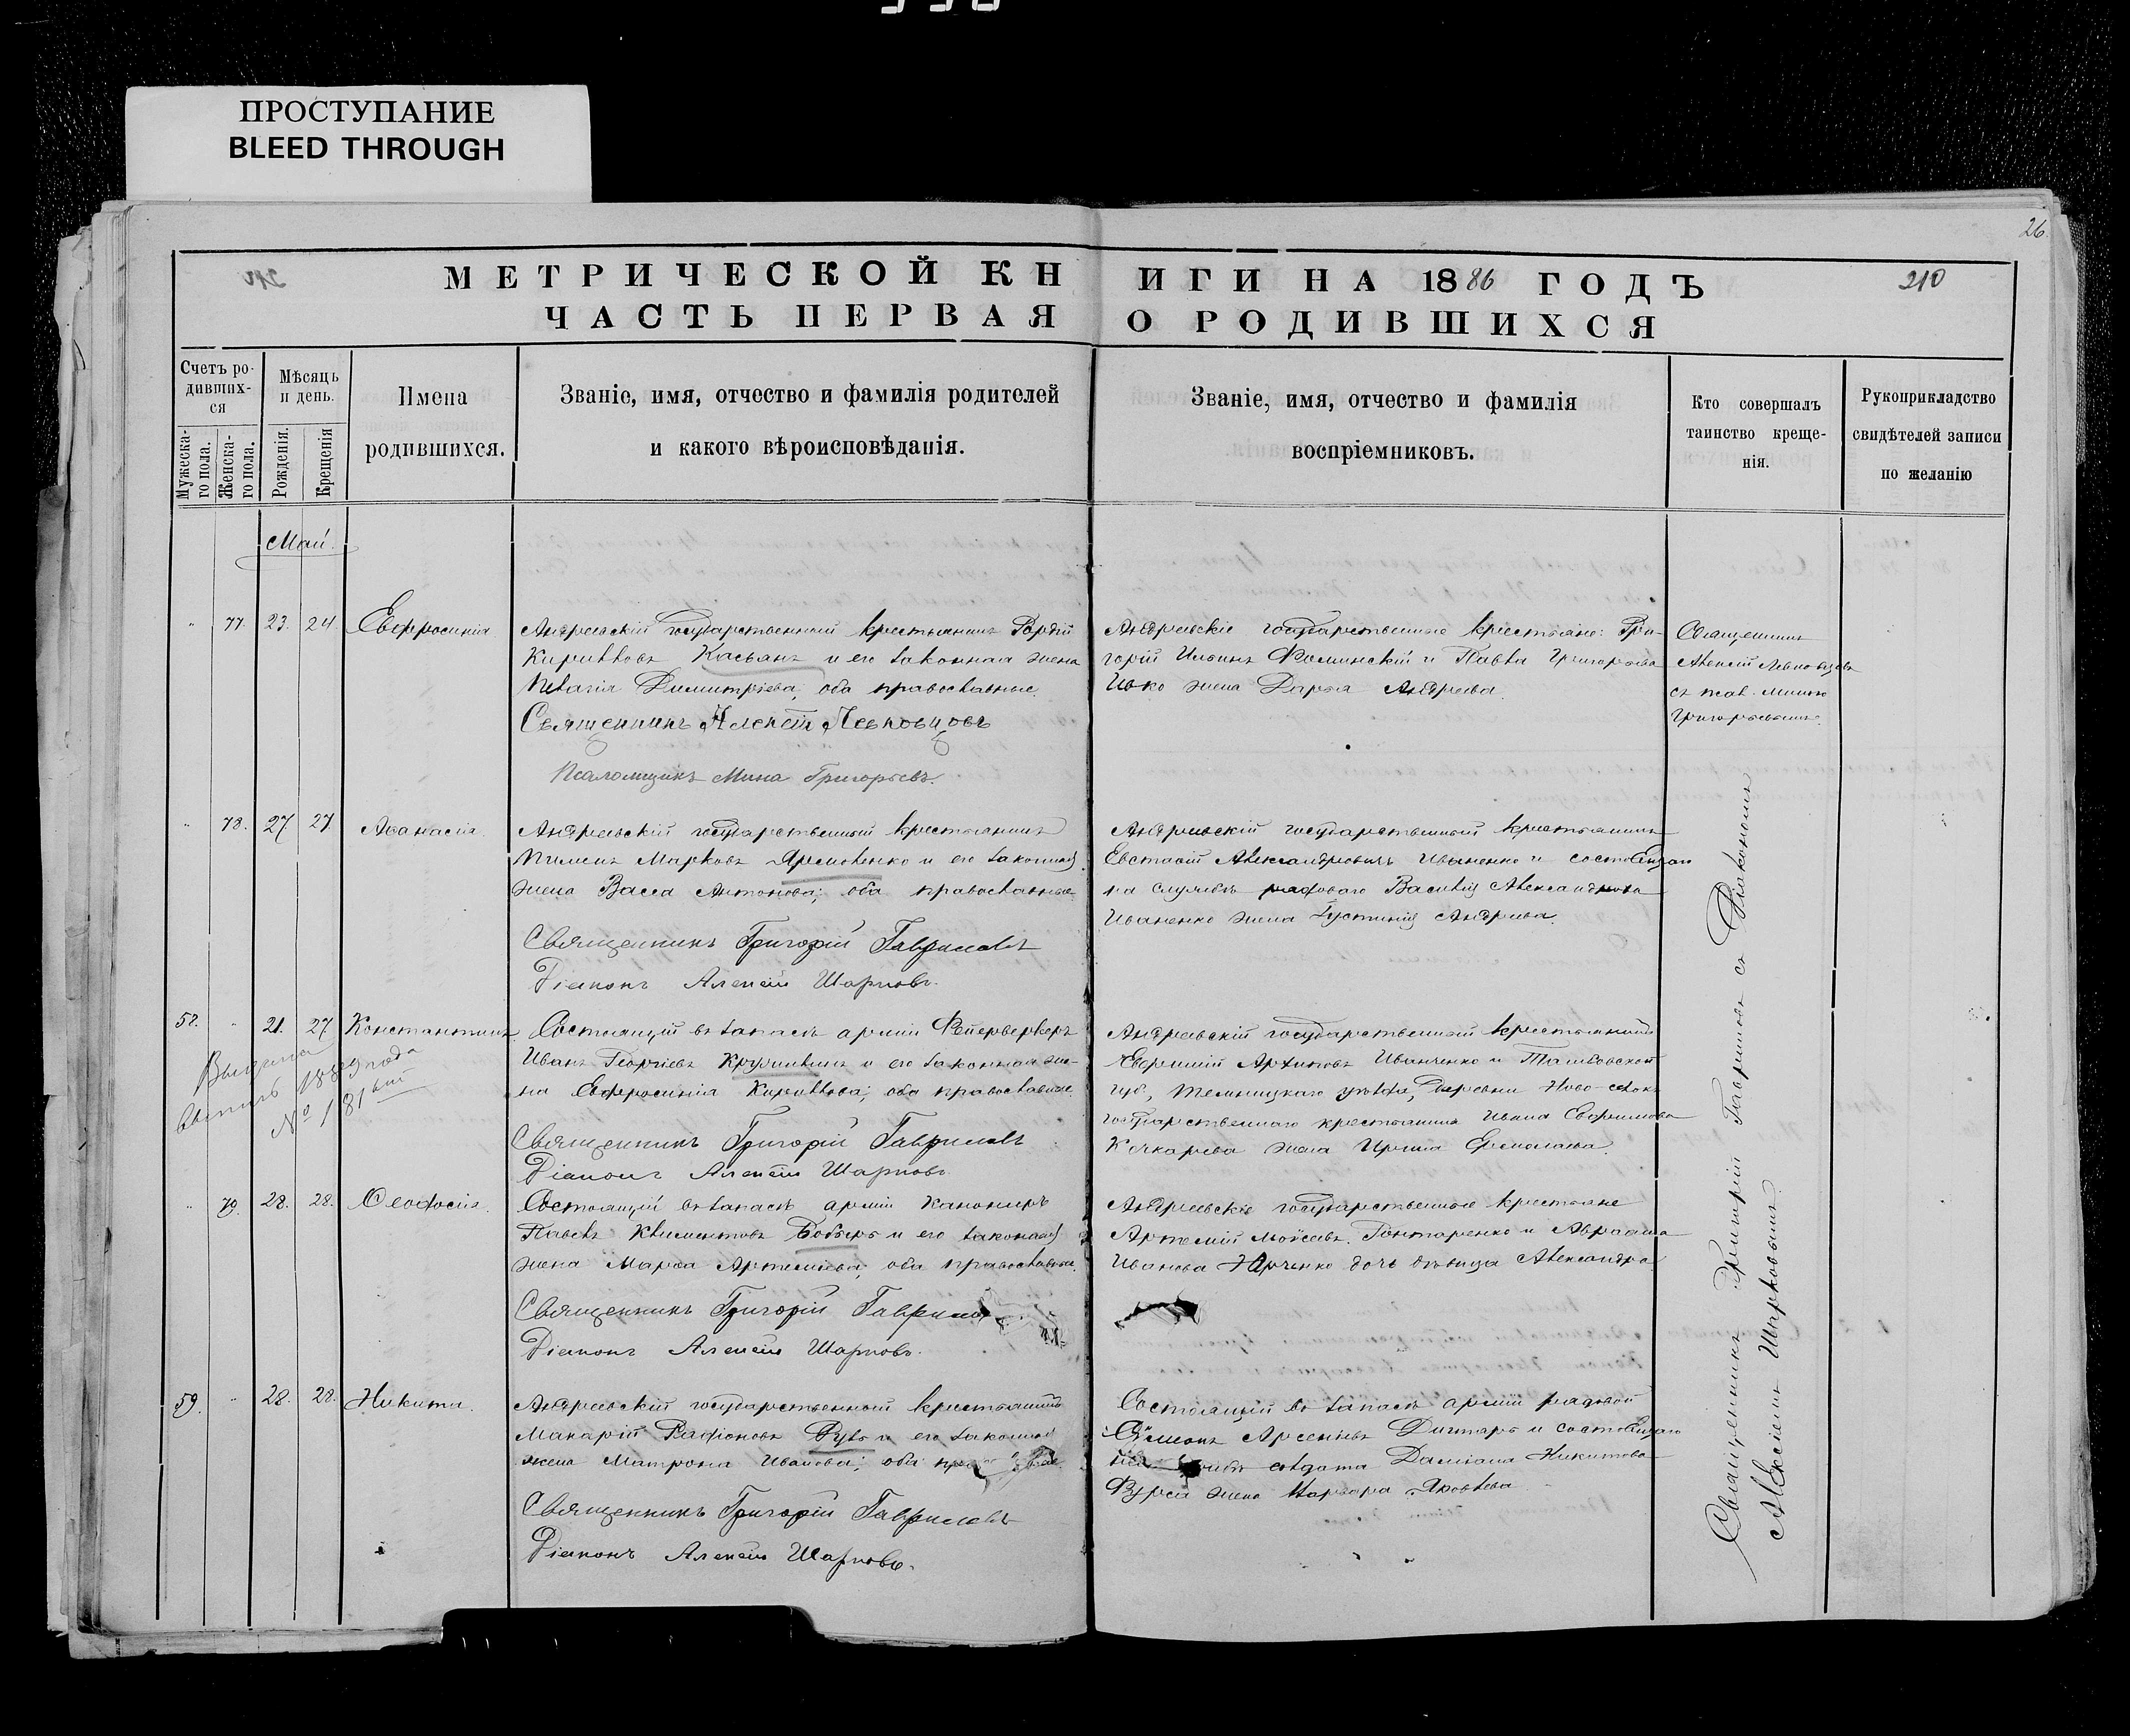 ПРОСТУПАНИЕ
BLEED THROUGH
26.
МЕТРИЧЕСКОЙ КНИГИ НА 1886 ГОДЪ
210
ЧАСТЬ ПЕРВАЯ О РОДИВШИХСЯ
Счетъ родившихся
Мужескаго пола.
Женскаго пола.
Мѣсяцъ и день.
Рожденія.
Крещенія
Имена
родившихся.
Званіе, имя, отчество и фамилія родителей
и какого вѣроисповѣданія.
Званіе, имя, отчество и фамилія
воспріемниковъ.
Кто совершалъ
таинство креще-
нія.
Рукоприкладство
свидѣтелей записи
по желанію
Май.
77. 23. 24 Евфросинія
Андреевскій государственный крестьянинъ Гордій
Кирилловъ Касьянъ и его законная жена
Пелагія Димитріева, оба православные.
Священникъ Алексѣй Левковцовъ
Псаломщикъ Мина Григорьевъ.
Андреевскіе государственные крестьяне: Гри-
горій Ильинъ Фоминскій и Павла Григорьева
Ивко жена Дарья Андреева.
Священникъ
Алексѣй Левковцовъ
съ псал. Миною
Григорьевымъ.
78. 27 27 Аѳанасія
Андреевскій государственный крестьянинъ
Пименъ Марковъ Ярмоленко и его законная
жена Васса Антонова; оба православные
Священникъ Григорій Гавриловъ
Діаконъ Алексѣй Шарковъ.
Андреевскій государственный крестьянинъ
Евстафій Александровичъ Иваненко и состоящаго
на службѣ рядоваго Василія Александрова
Иваненко жена Іустинія Андреева.
58. 21. 27 Константинъ
Выдана
выпись 1889 года
№ 181ый
Состоящій въ запасѣ арміи Фейерверкеръ
Иванъ Георгіевъ Кружилинъ и его законная же-
на Евфросинія Кириллова; оба православные.
Священникъ Григорій Гавриловъ
Діаконъ Алексѣй Шарковъ
Андреевскій государственный крестьянинъ
Евфимій Архиповъ Иванченко и Тамбовской
губ., Темницкаго уѣзда, деревни Ново-селокъ
государственнаго крестьянина Ивана Евфимова
Кочкарева жена Ирина Ермолаева.
79. 28. 28. Ѳеодосія.
Состоящій въ запасѣ арміи канониръ
Павелъ Климентовъ Бобырь и его законная
жена Марѳа Артеміева, оба православные.
Священникъ Григорій Гавриловъ
Діаконъ Алексѣй Шарковъ.
Андреевскіе государственные крестьяне
Артемій Моѵсеевъ Гонтаренко и Авраама
Иванова Юрченко дочь дѣвица Александра
59. 28. 28. Никита.
Андреевскій государственный крестьянинъ
Макарій Радіоновъ Рубъ и его законная
жена Матрона Иванова; оба
Священникъ Григорій Гавриловъ
Діаконъ Алексѣй Шарковъ.
Состоящій въ запасѣ арміи рядовой
Сѵмеонъ Арсеніевъ Дихтярь и состоящаго
солдата Даміана Никитова
Фурси жена Варвара Яковлева
Священникъ Григорій Гавриловъ съ Діакономъ
Алексѣемъ Шарковымъ.